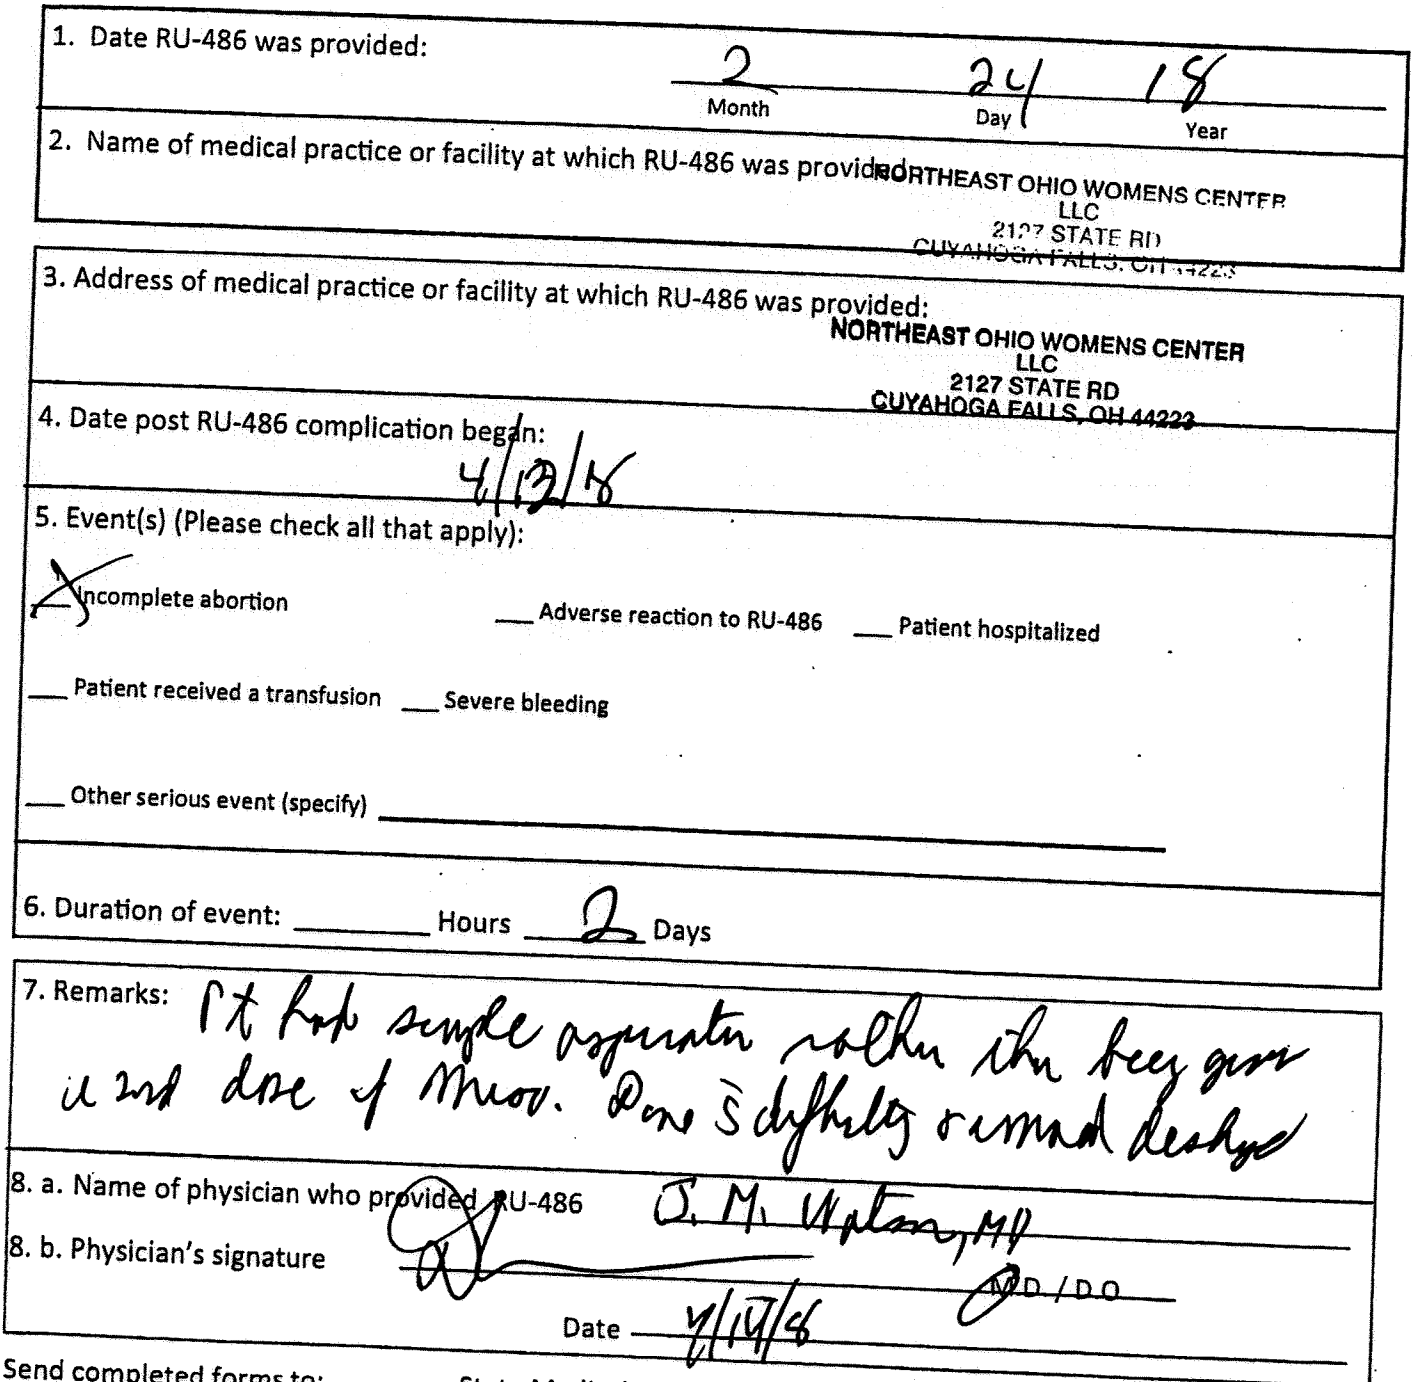 1. Date RU-486 was provided:
2 24 18
Month Day Year
2. Name of medical practice or facility at which RU-486 was provided
NORTHEAST OHIO WOMENS CENTER
LLC
2127 STATE RD
CUYAHOGA FALLS, OH 44223
3. Address of medical practice or facility at which RU-486 was provided:
NORTHEAST OHIO WOMENS CENTER
LLC
2127 STATE RD
CUYAHOGA FALLS, OH 44223
4. Date post RU-486 complication began:
4/13/18
5. Event(s) (Please check all that apply):
Incomplete abortion __ Adverse reaction to RU-486 __ Patient hospitalized
__ Patient received a transfusion __ Severe bleeding
__ Other serious event (specify)
6. Duration of event: ____ Hours 2 Days
7. Remarks: Pt had simple aspiration rather than being given
2nd dose of Miso. Done s̄ difficulty
8. a. Name of physician who provided RU-486 J. M. Watson, MD
8. b. Physician's signature
MD/DO
Date
Send completed forms to: